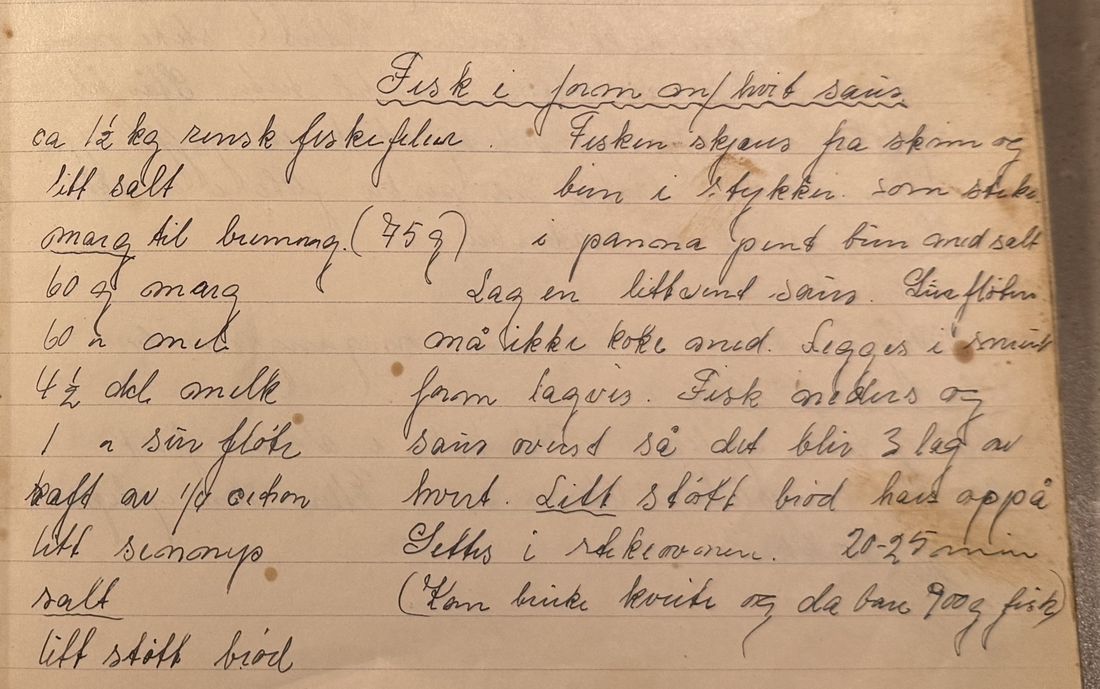 Fisk i form m/ hvit saus
ca 1½ kg rensk fiskefileer. Fisken skjæres fra skinn og
litt salt ben i stykker. som steke
marg til bruning. (75 g) i panna pent brun med salt
60 g marg Lag en lettvend saus. Sur fløten
60 " mel må ikke koke med. Legges i smurt
4½ del melk form lagvis. Fisk neders og
1 " sur fløte saus øverst så det blir 3 lag av
saft av 1/2 citron hvert. Litt støtt brød haes oppå
litt sennep Settes i stekeovnen. 20-25 min
salt (Kan bruke kveite og da bare 900 g fisk)
litt støtt brød